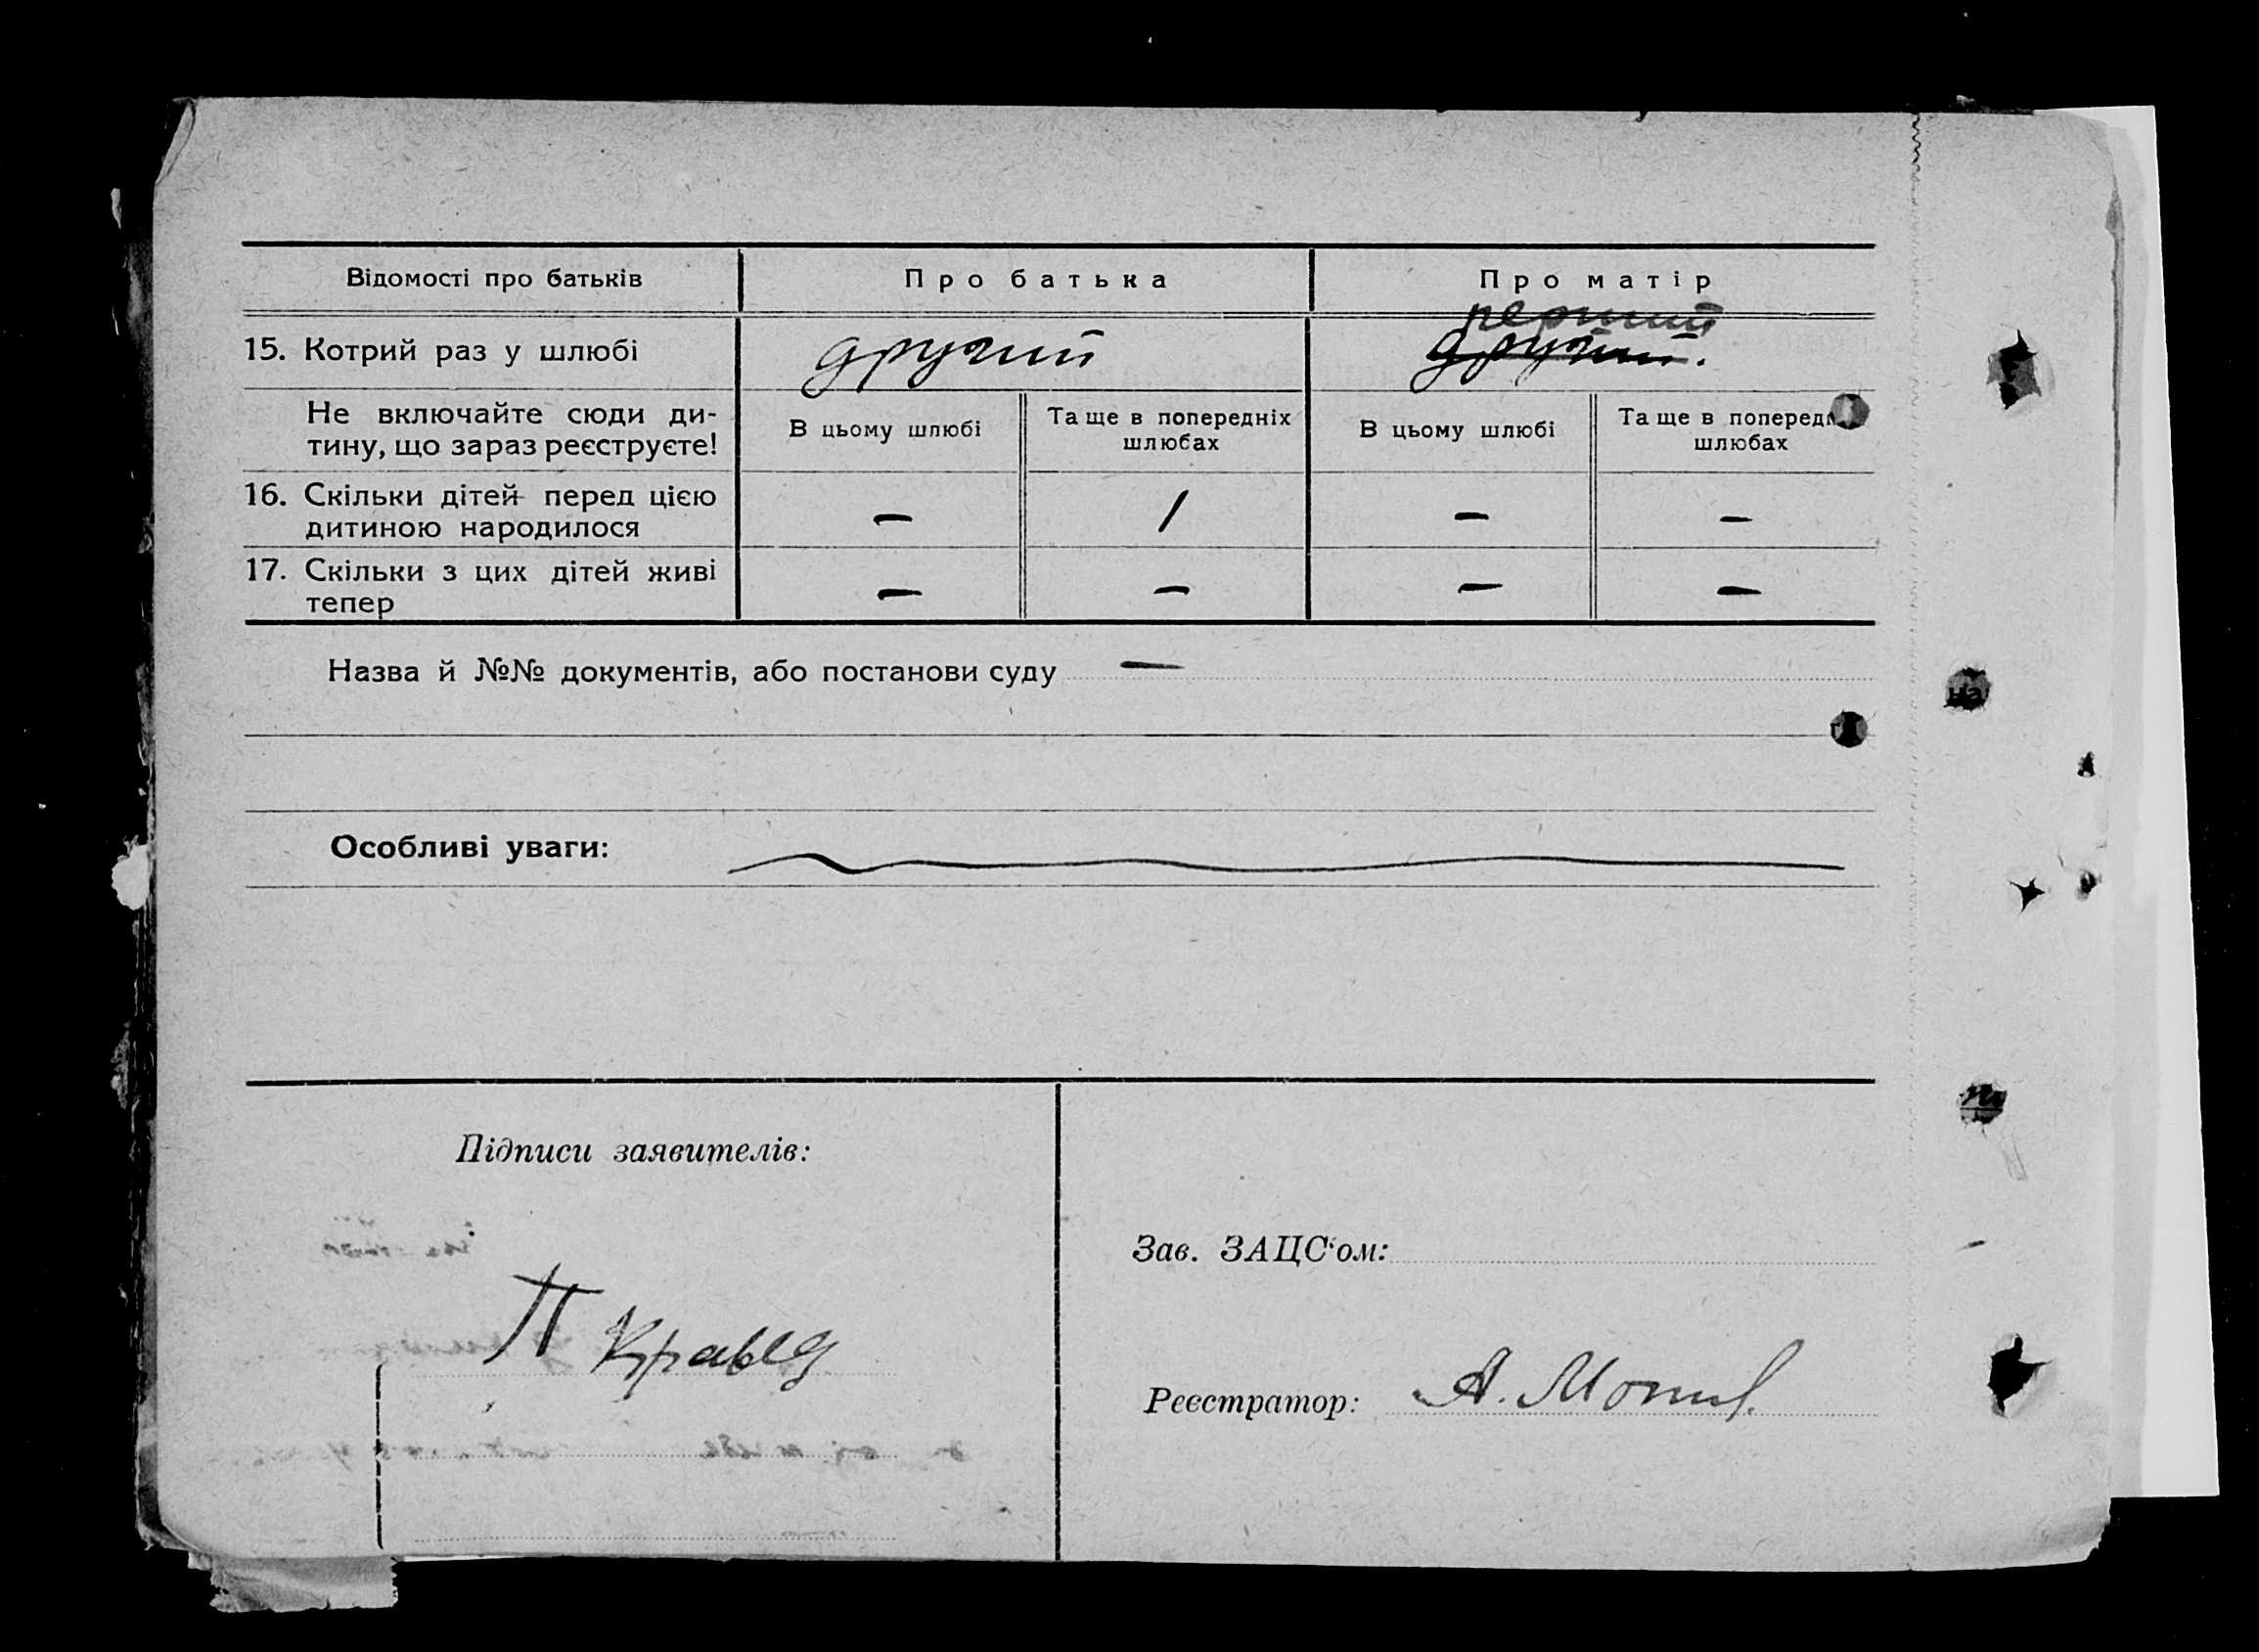 Відомості про батьків
Про батька
Про матір
15. Котрий раз у шлюбі
другий
перший
другий.
Не включайте сюди ди-
тину, що зараз реєструєте!
В цьому шлюбі
Та ще в попередніх
шлюбах
В цьому шлюбі
Та ще в
шлюбах
16. Скільки дітей перед цією
дитиною народилося
—
1
—
—
17. Скільки з цих дітей живі
тепер
—
—
—
—
Назва й №№ документів, або постанови суду —
Особливі уваги:
Підписи заявителів:
П Кравец
Зав. ЗАЦС'ом:
Реєстратор: А.